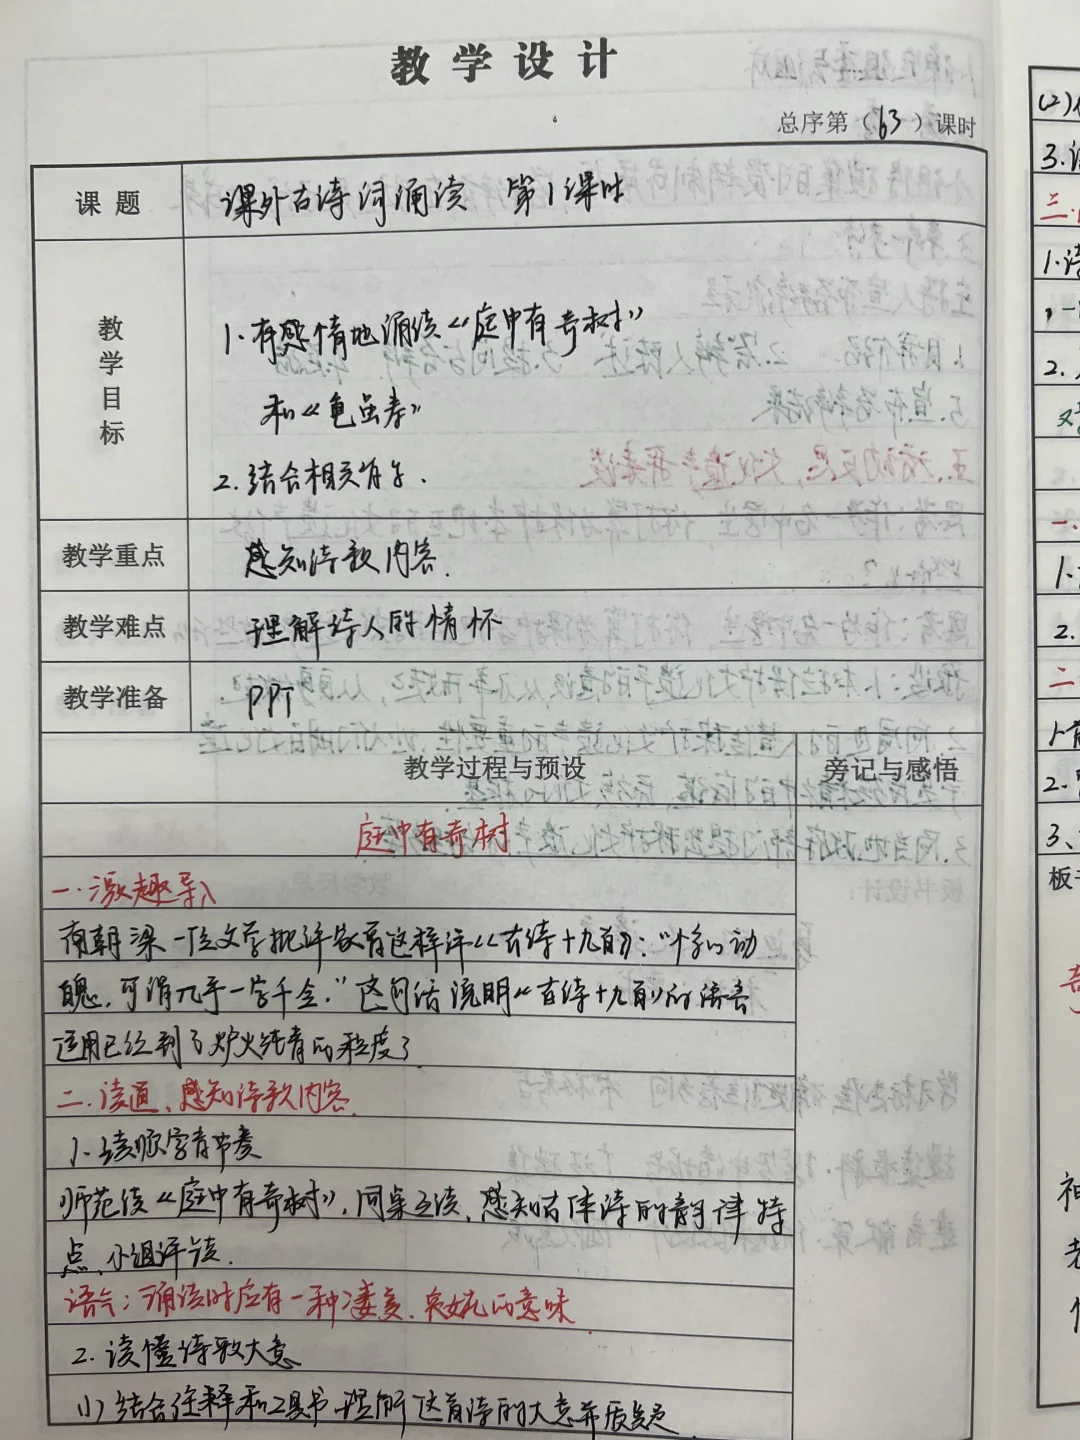 教学设计
总序第（63）课时
课题 课外古诗词诵读 第1课时
教学目标
1.有感情地诵读《庭中有奇树》
和《龟虽寿》
2.结合相关
教学重点 感知诗歌内容.
教学难点 理解诗人的情怀
教学准备 PPT
教学过程与预设 旁记与感悟
庭中有奇树
一.激趣导入
南朝梁一位文学批评家有这样评《古诗十九首》："惊心动
魄，可谓几乎一字千金."这句话说明《古诗十九首》的语言
运用已经到了炉火纯青的程度了
二.读通、感知诗歌内容
1.读顺字音节奏
师范读《庭中有奇树》,同桌互读,感知古体诗的韵律特
点,小组评读.
语气:诵读时应有一种凄美、哀婉的意味
2.读懂诗歌大意
(1)结合注释和工具书理解这首诗的大意并质疑.
(2)
3.
三.
1.
2.
一.
1.
2.
二
1.
2.
3、
板书